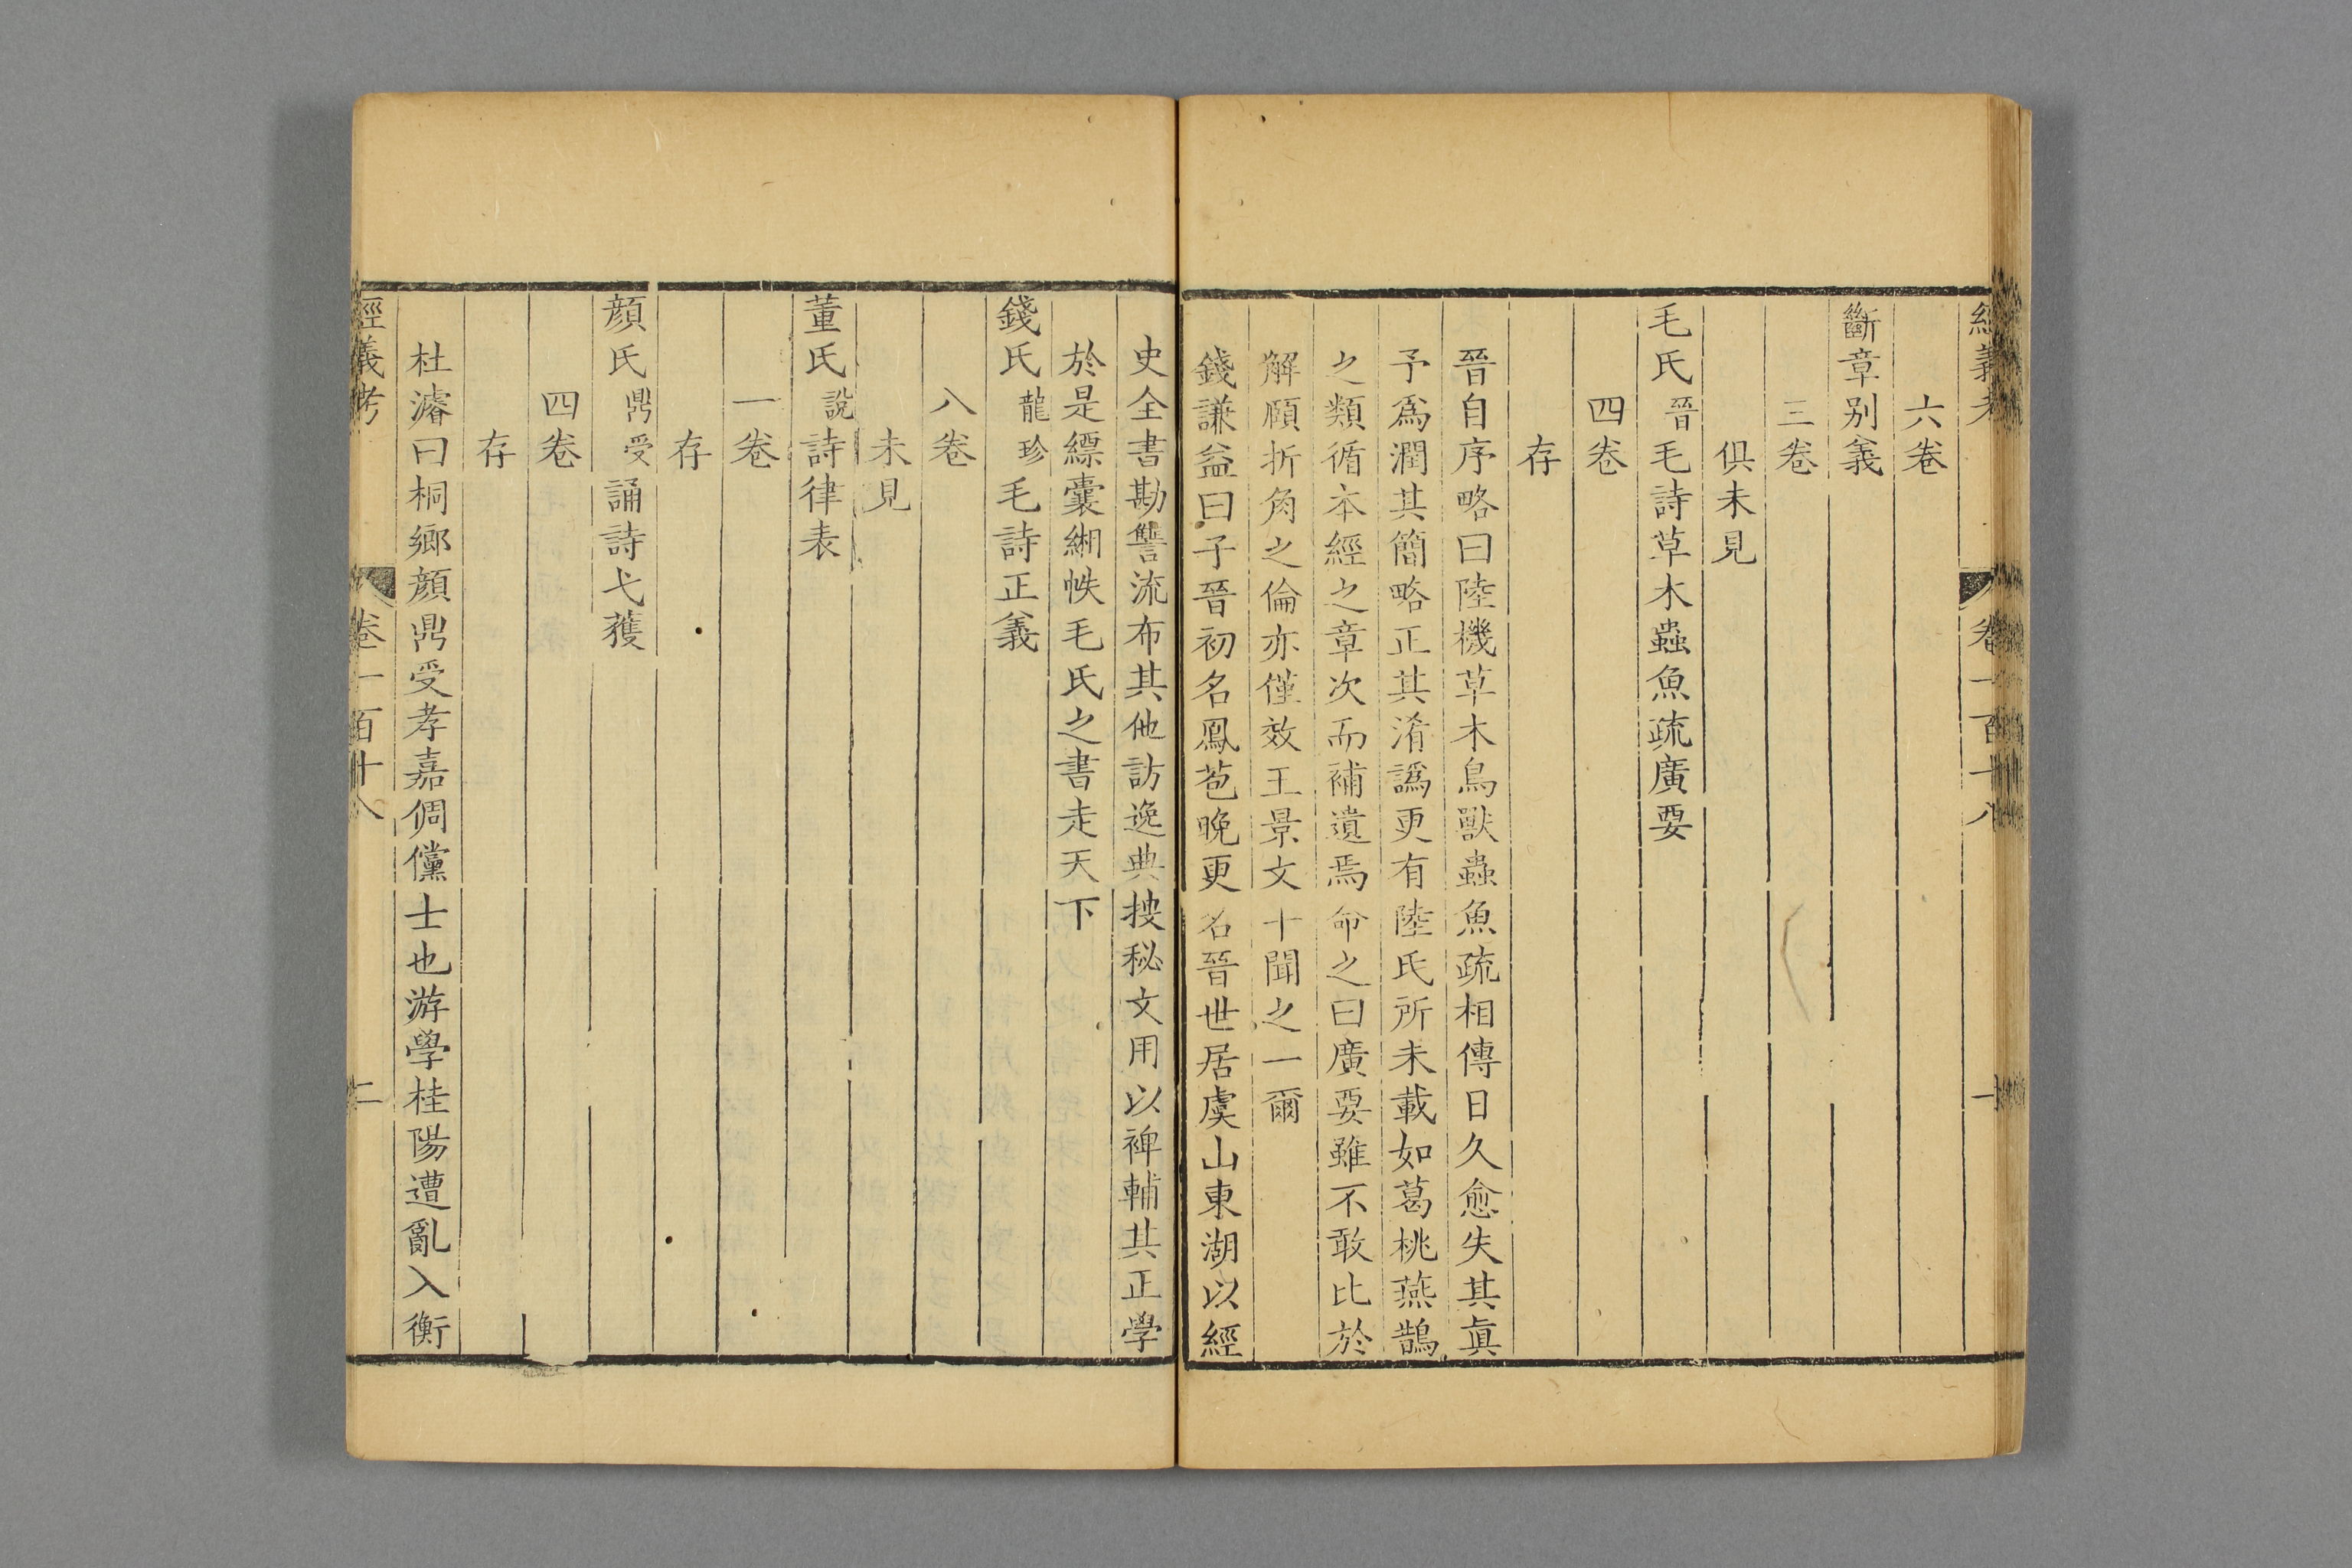 經義考 卷一百十八 一
六卷
斷章别義
三卷
俱未見
毛氏晉毛詩草木蟲魚疏廣要
四卷
存
晉自序略曰陸機草木鳥獸蟲魚疏相傳日久愈失其眞
予爲潤其簡略正其淆譌更有陸氏所未載如葛桃燕鵲
之類循本經之章次而補遺焉命之曰廣要雖不敢比於
解頤折角之倫亦僅效王景文十聞之一爾
錢謙益曰子晉初名鳳苞晚更名晉世居虞山東湖以經
史全書勘讐流布其他訪逸典搜秘文用以裨輔其正學
於是縹囊緗帙毛氏之書走天下
錢氏龍珍毛詩正義
八卷
未見
董氏說詩律表
一卷
存
顏氏鼎受誦詩弋獲
四卷
存
杜濬曰桐鄉顏鼎受孝嘉倜儻士也游學桂陽遭亂入衡
經義考 卷一百十八 二